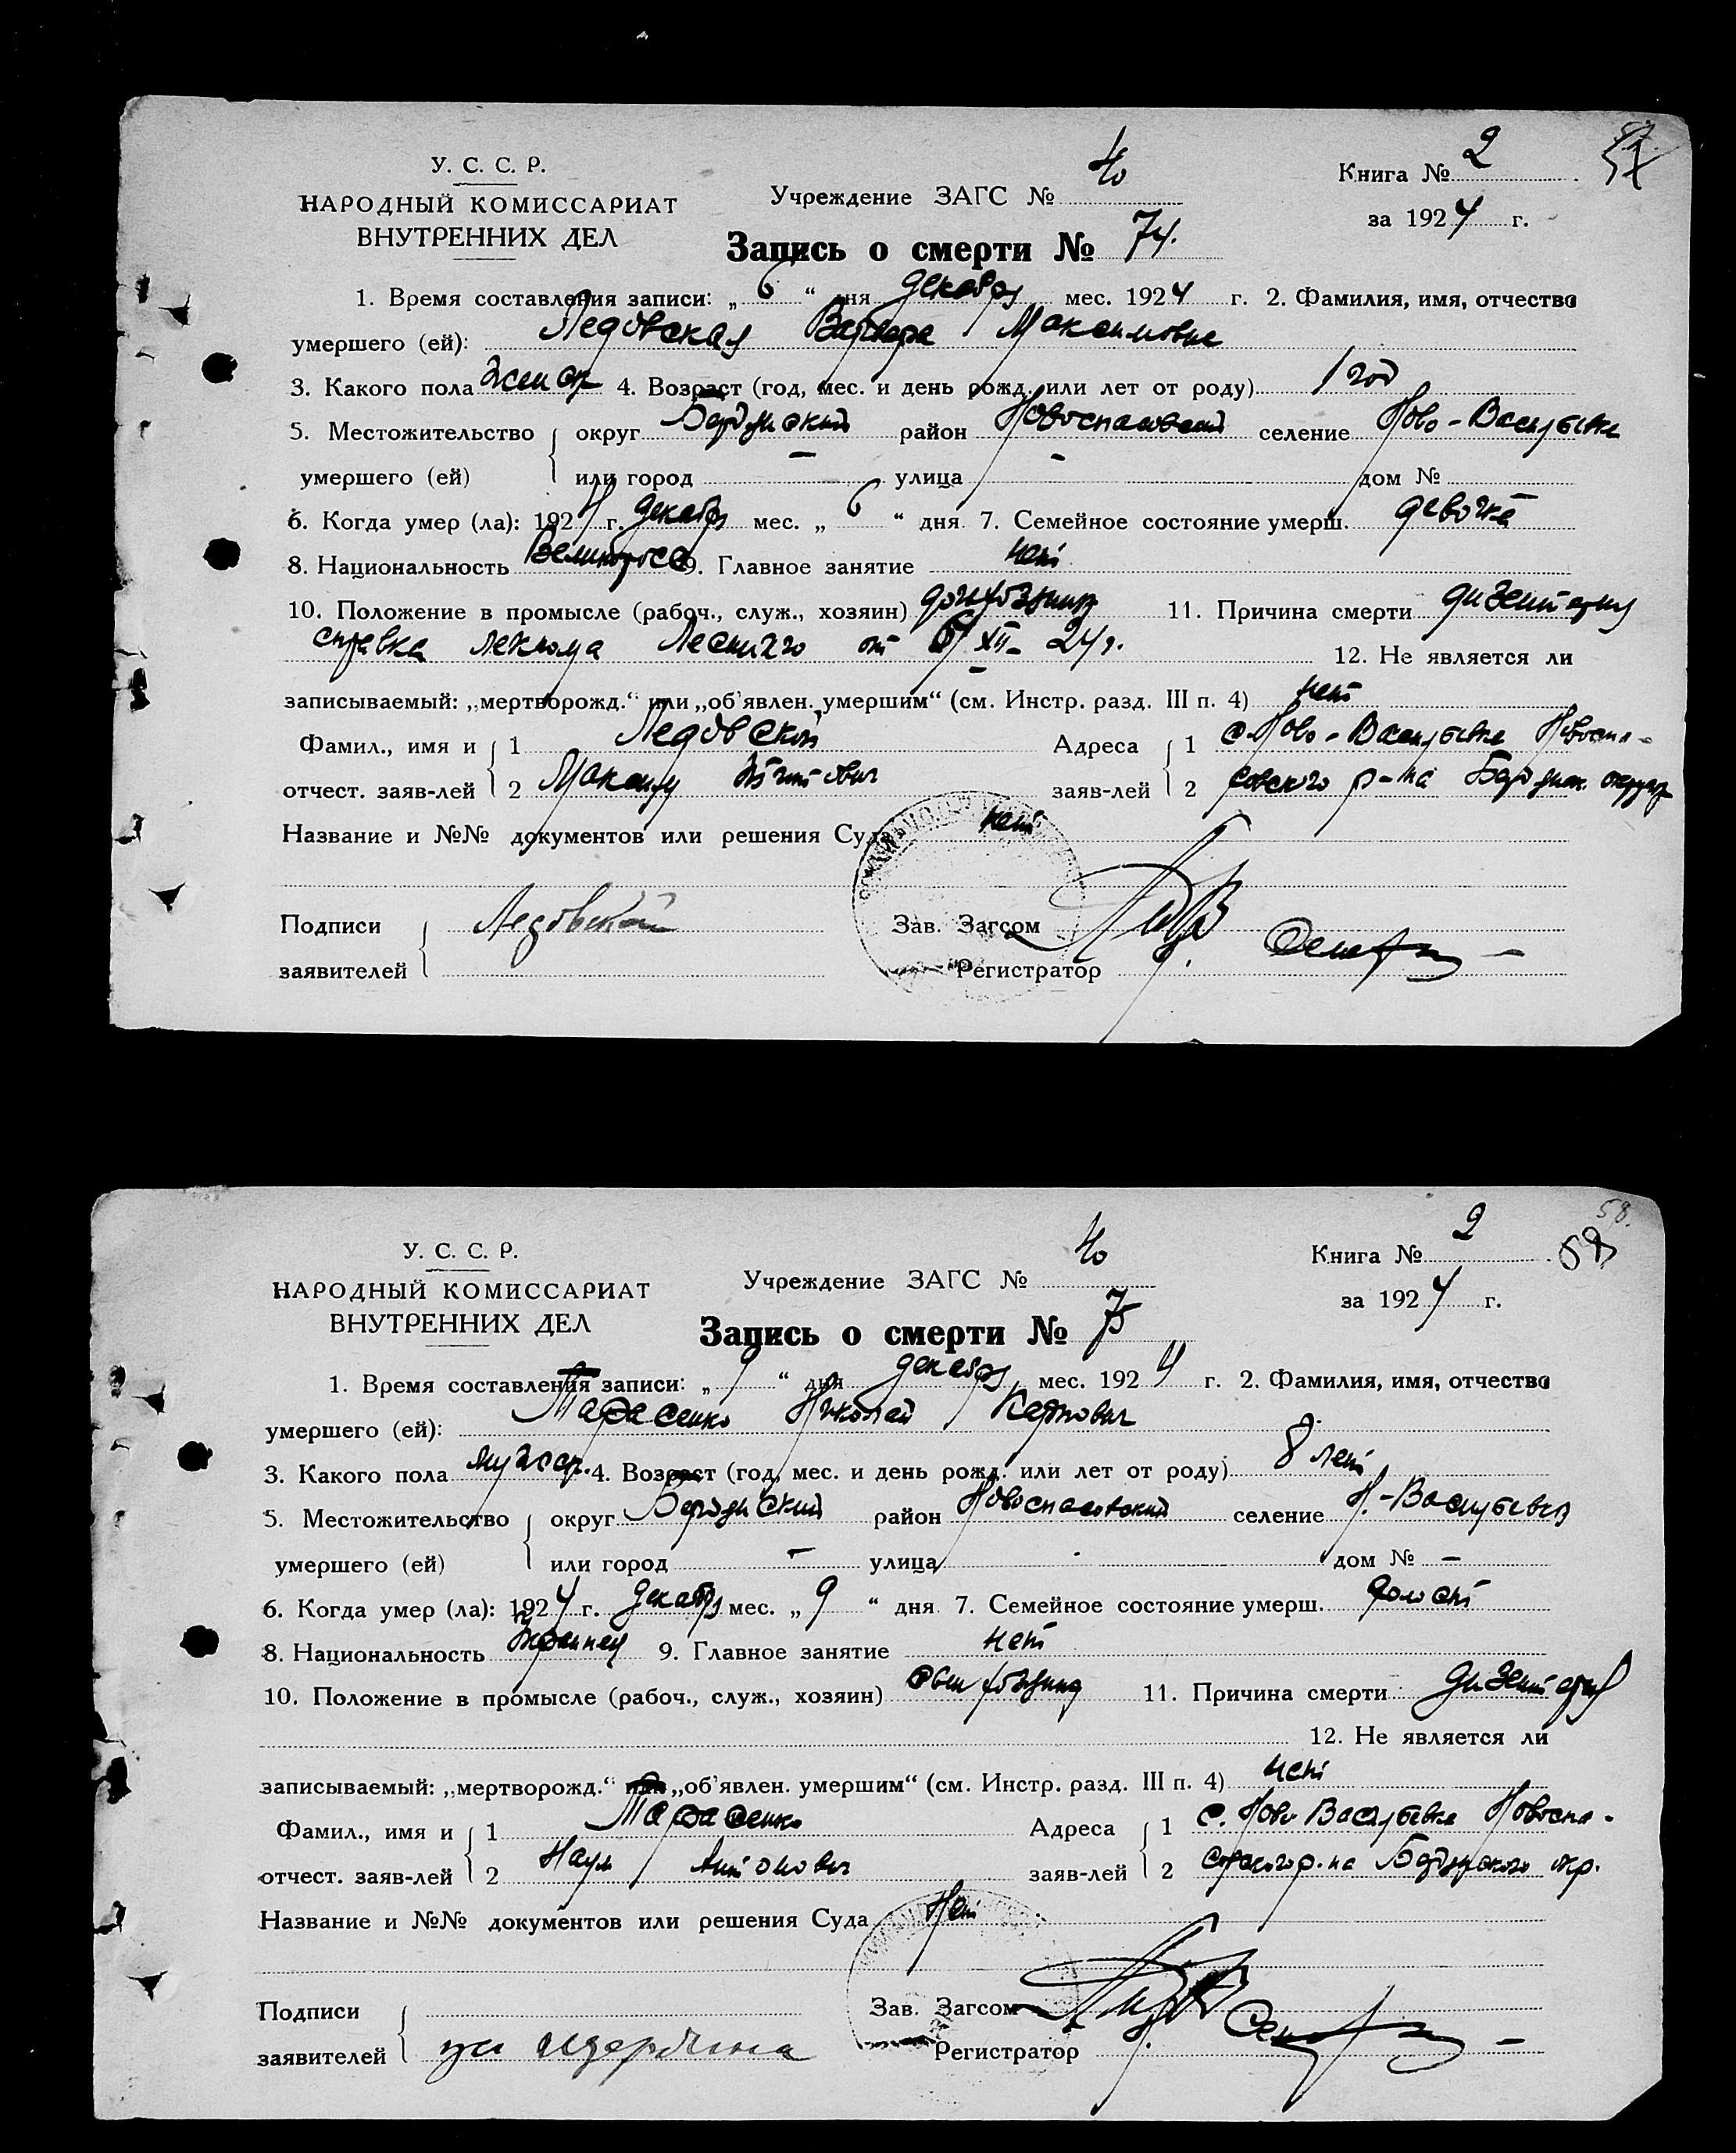 57
У. С. С. Р.
НАРОДНЫЙ КОМИССАРИАТ
ВНУТРЕННИХ ДЕЛ
Учреждение ЗАГС № 40
Книга № 2
за 1924 г.
Запись о смерти № 74.
1. Время составления записи: „ 6 “ дня декабря мес. 1924 г. 2. Фамилия, имя, отчество
умершего (ей): Ледовская Варвара Максимовна
3. Какого пола женск 4. Возраст (год, мес. и день рожд. или лет от роду) 1 год
5. Местожительство округ Бердянский район Новоспасовский селение Ново-Васильевка
умершего (ей) или город — улица - дом №
6. Когда умер (ла): 1924 г. декабря мес. „ 6 “ дня 7. Семейное состояние умерш. девочка
8. Национальность Великоросс 9. Главное занятие нет
10. Положение в промысле (рабоч., служ., хозяин) дочь 11. Причина смерти дизентерия
справка лекпома от 6/XII- 24 г. 12. Не является ли
записываемый: „мертворожд.“ или „об'явлен. умершим“ (см. Инстр. разд. III п. 4) нет
Фамил., имя и 1 Ледовской Адреса 1 с. Ново-Васильевка Новоспа-
отчест. заяв-лей 2 Максим заяв-лей 2 совского р-на Бердянск. округа
Название и №№ документов или решения Суда нет
Подписи Ледовской Зав. Загсом
заявителей Регистратор
58.
58
У. С. С. Р.
НАРОДНЫЙ КОМИССАРИАТ
ВНУТРЕННИХ ДЕЛ
Учреждение ЗАГС № 40
Книга № 2
за 1924 г.
Запись о смерти № 75
1. Время составления записи: „ 9 “ дня декабря мес. 1924 г. 2. Фамилия, имя, отчество
умершего (ей): Тарасенко Николай Карпович
3. Какого пола мужск. 4. Возраст (год, мес. и день рожд. или лет от роду) 8 лет
5. Местожительство округ Бердянский район Новоспасовский селение Н.-Васильевка
умершего (ей) или город - улица дом № —
6. Когда умер (ла): 1924 г. декабря мес. „ 9 “ дня 7. Семейное состояние умерш. холост
8. Национальность Украинец 9. Главное занятие нет
10. Положение в промысле (рабоч., служ., хозяин) сын 11. Причина смерти дизентерия
12. Не является ли
записываемый: „мертворожд.“ или „об'явлен. умершим“ (см. Инстр. разд. III п. 4) нет
Фамил., имя и 1 Тарасенко Адреса 1 с. Ново Васильевка Новоспа-
отчест. заяв-лей 2 Наум Антонович заяв-лей 2 совского р-на Бердянского окр.
Название и №№ документов или решения Суда Нет
Подписи Зав. Загсом
заявителей Регистратор